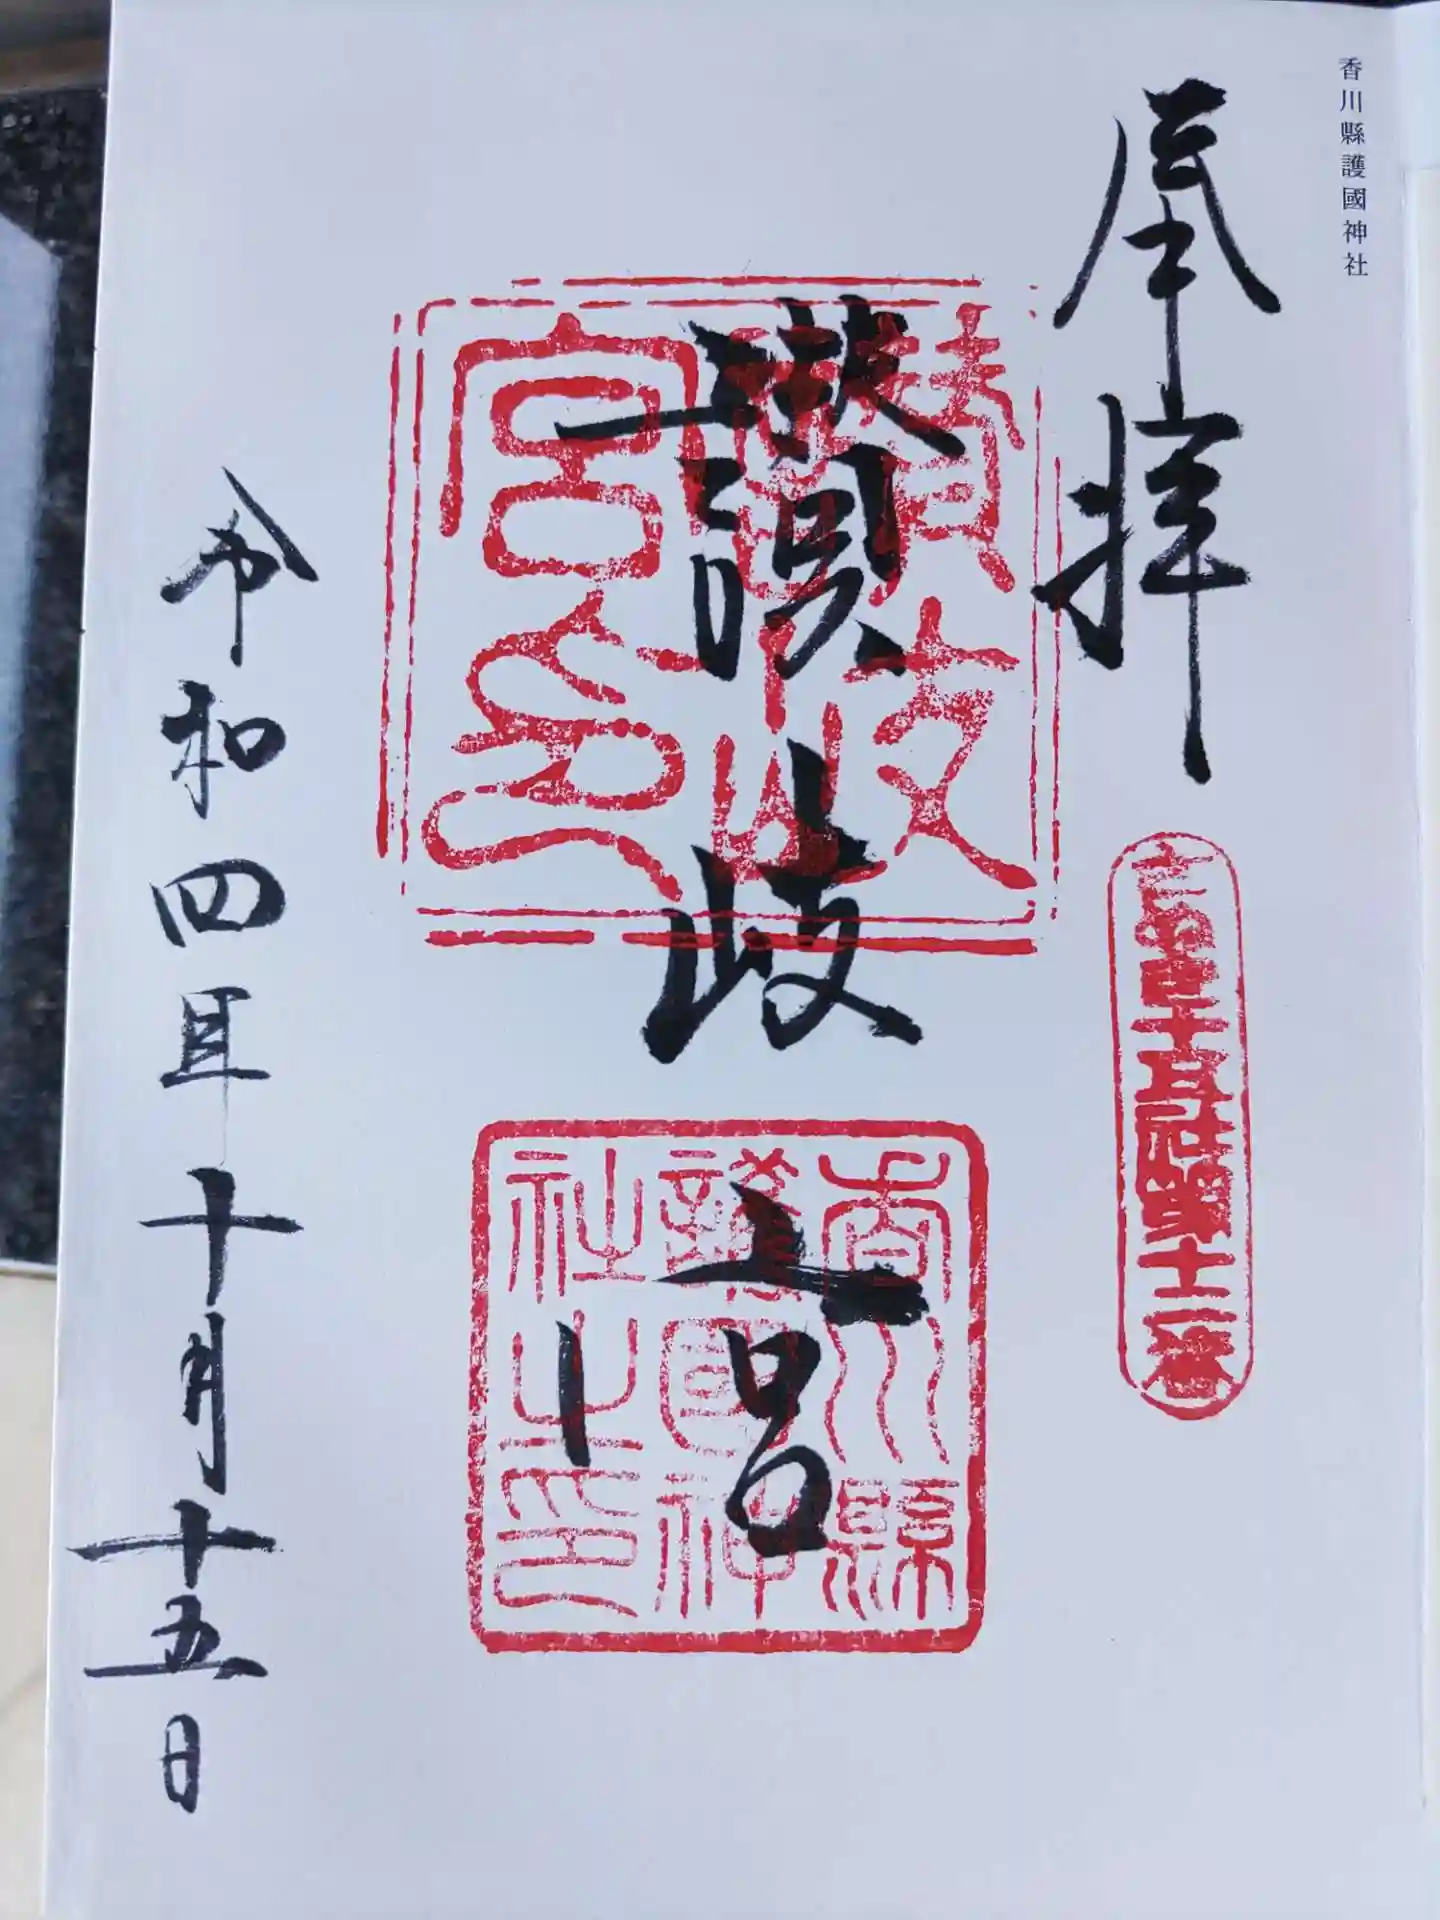 香川縣護國神社
奉拝
讃岐宮
讃岐
宮印
香川縣
護國神
社之印
令和四年十月十五日